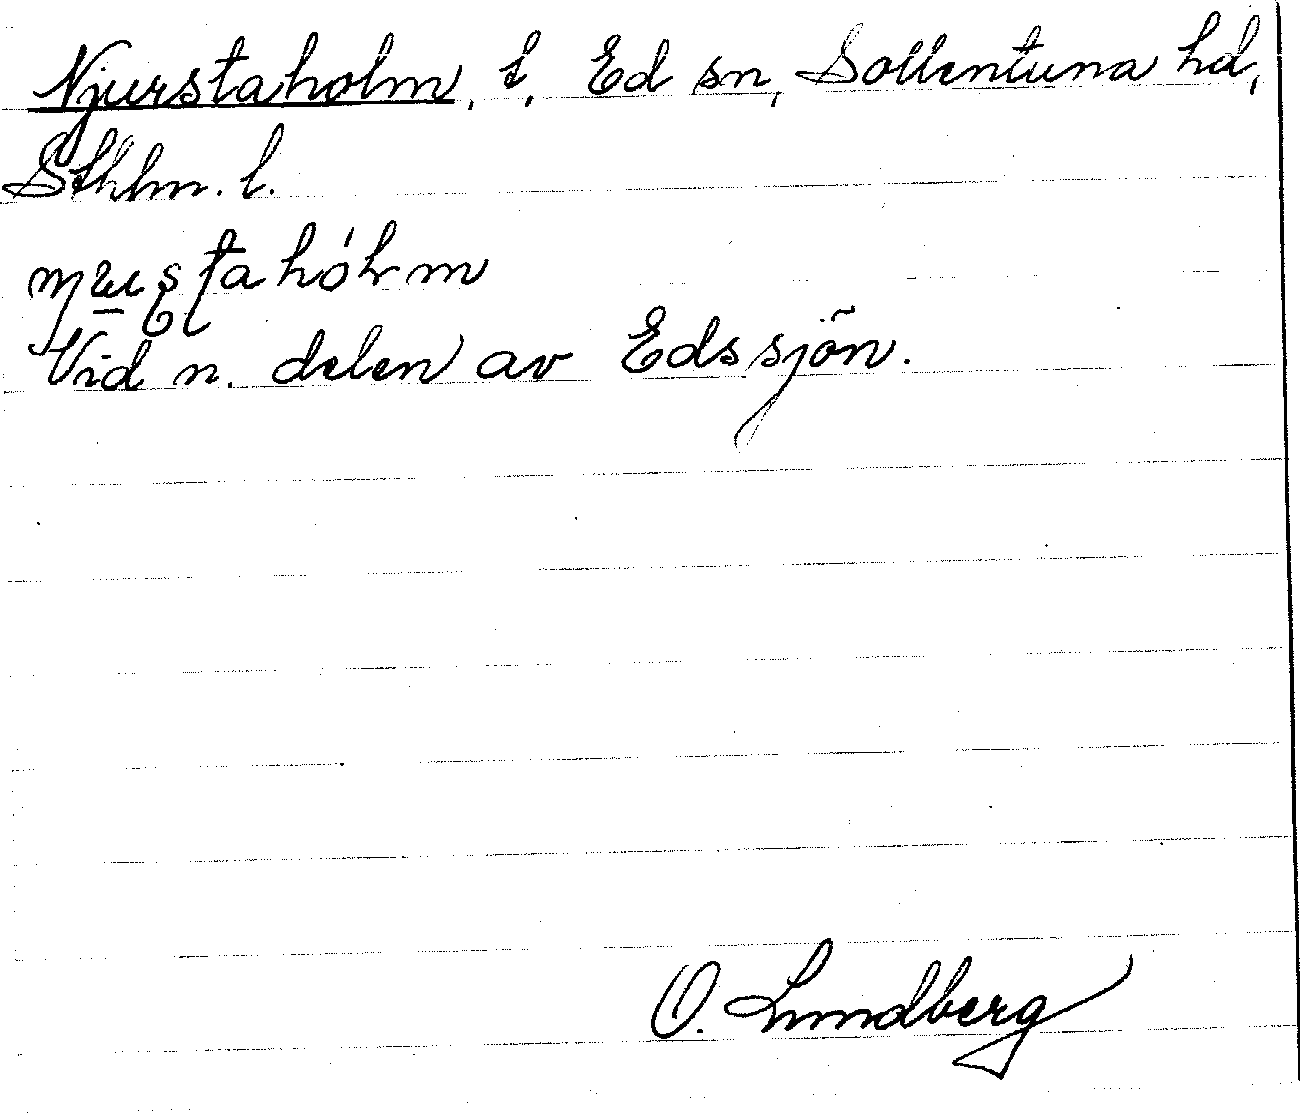 Njurstaholm, t, Ed sn, Sollentuna hd,
Sthlm. l.
Vid n. delen av Edssjön.
O. Lundberg